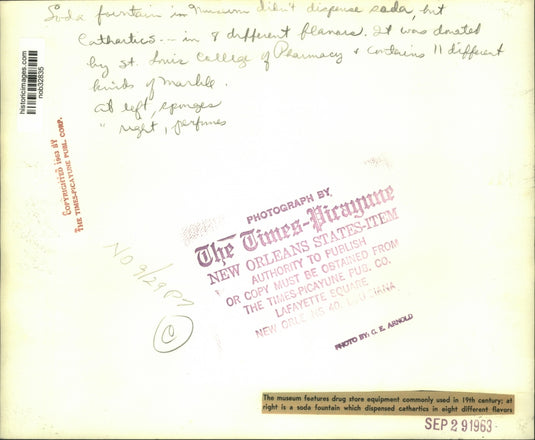 Soda fountain in Museum didn't dispense soda, but
Cathartics -- in 8 different flavors. It was donated
by St. Louis College of Pharmacy & contains 11 different
kinds of marble.
At left, sponges
" right, perfumes
historicimages.com
COPYRIGHTED 1963 BY
THE TIMES-PICAYUNE PUB. CORP.
PHOTOGRAPH BY
The Times-Picayune
NEW ORLEANS STATES-ITEM
AUTHORITY TO PUBLISH
OR COPY MUST BE OBTAINED FROM
THE TIMES-PICAYUNE PUB. CO.
LAFAYETTE SQUARE
NEW ORLE NS 40, LOU SIANA
PHOTO BY: G. E. ARNOLD
NO 9/29
C
The museum features drug store equipment commonly used in 19th century; at
right is a soda fountain which dispensed cathartics in eight different flavors
SEP 29 1963